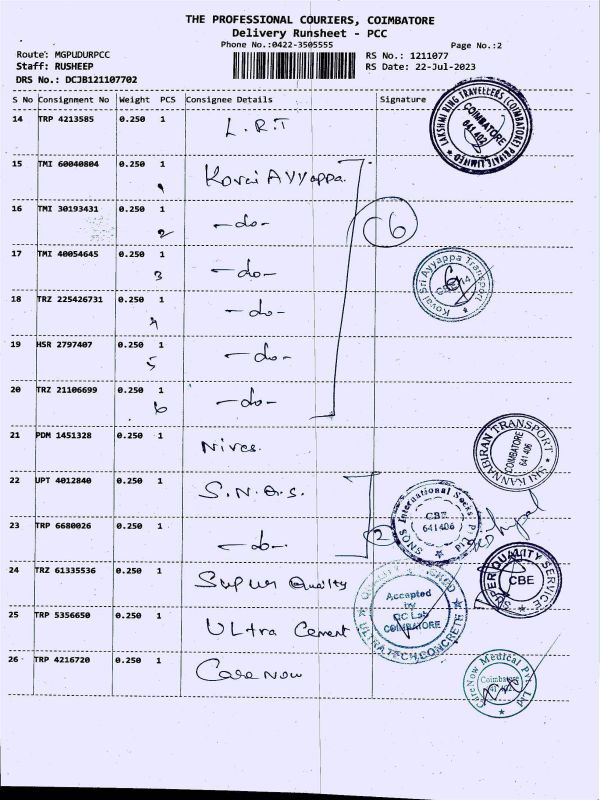 THE PROFESSIONAL COURIERS, COIMBATORE
Delivery Runsheet - PCC
Phone No.:0422-3505555
Page No.:2
Route: MGPUDURPCC
RS No.: 1211077
Staff: RUSHEEP
RS Date: 22-Jul-2023
DRS No.: DCJB121107702
S No Consignment No Weight PCS Consignee Details Signature
14 TRP 4213585 0.250 1 L.R.T
LAKSHMI RING TRAVELLERS (COIMBATORE) PRIVATE LIMITED ★
COIMBATORE
641 402
15 TMI 60040804 0.250 1 Kovai AYYappa.
1
16 TMI 30193431 0.250 1 -do-
2
6
17 TMI 40054645 0.250 1 -do-
3
Kovai Sri Ayyappa Transport
18 TRZ 225426731 0.250 1 -do-
4
19 HSR 2797407 0.250 1 -do-
5
20 TRZ 21106699 0.250 1 -do-
6
21 PDM 1451328 0.250 1 Nives.
SRI KANNABIRAN TRANSPORT
COIMBATORE
641 406
22 UPT 4012840 0.250 1 S.N.Q.S.
SNQS International Socks P
CBE
641406
23 TRP 6680026 0.250 1 -do-
2
24 TRZ 61335536 0.250 1 Super Quality
SUPER QUALITY SERVICE
CBE
25 TRP 5356650 0.250 1 ULtra Cement
Accepted
by
QC Lab
COIMBATORE
ULTRATECH CONCRETE
26 TRP 4216720 0.250 1 Care Now
CareNow Medical Pvt
Coimbatore